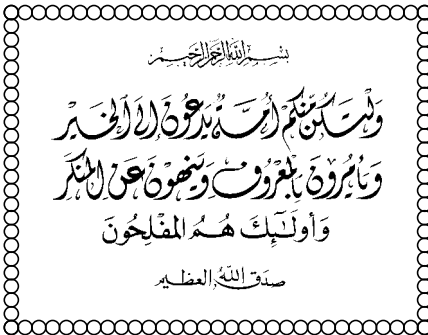 بسم الله الرحمن الرحيم
وَلْتَكُن مِّنكُمْ أُمَّةٌ يَدْعُونَ إِلَى الْخَيْرِ
وَيَأْمُرُونَ بِالْمَعْرُوفِ وَيَنْهَوْنَ عَنِ الْمُنكَرِ
وَأُولَٰئِكَ هُمُ الْمُفْلِحُونَ
صدق الله العظيم